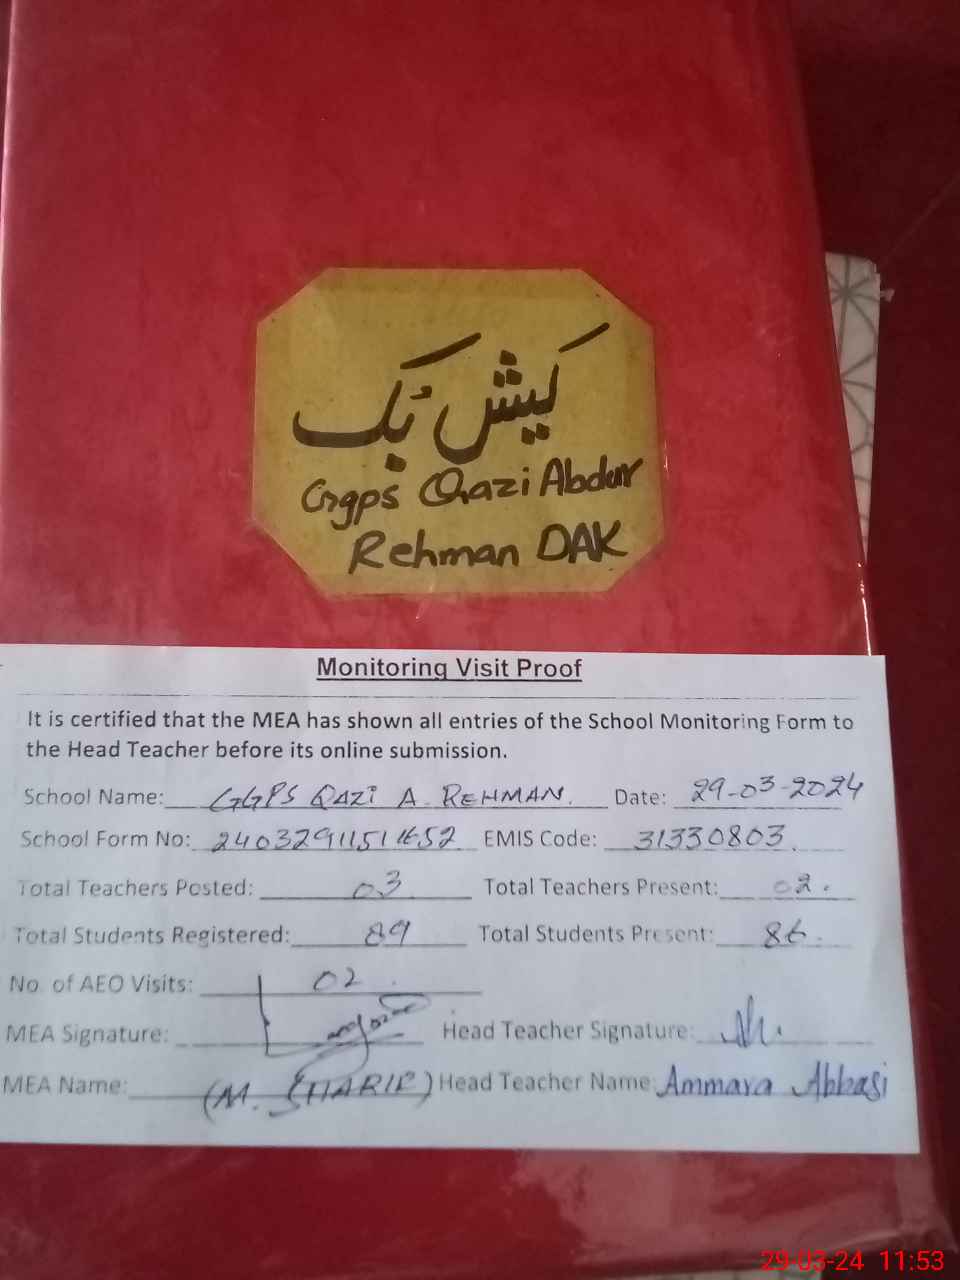 کیش بُک
Ggps Qazi Abdur
Rehman DAK
Monitoring Visit Proof
It is certified that the MEA has shown all entries of the School Monitoring Form to
the Head Teacher before its online submission.
School Name: GGPS QAZI A. REHMAN. Date: 29-03-2024
School Form No: EMIS Code: 31330803
Total Teachers Posted: 03 Total Teachers Present: 02.
Total Students Registered: 89 Total Students Present: 86.
No. of AEO Visits: 02.
MEA Signature: Head Teacher Signature:
MEA Name: (M. SHARIF) Head Teacher Name: Ammara Abbasi
29-03-24 11:53